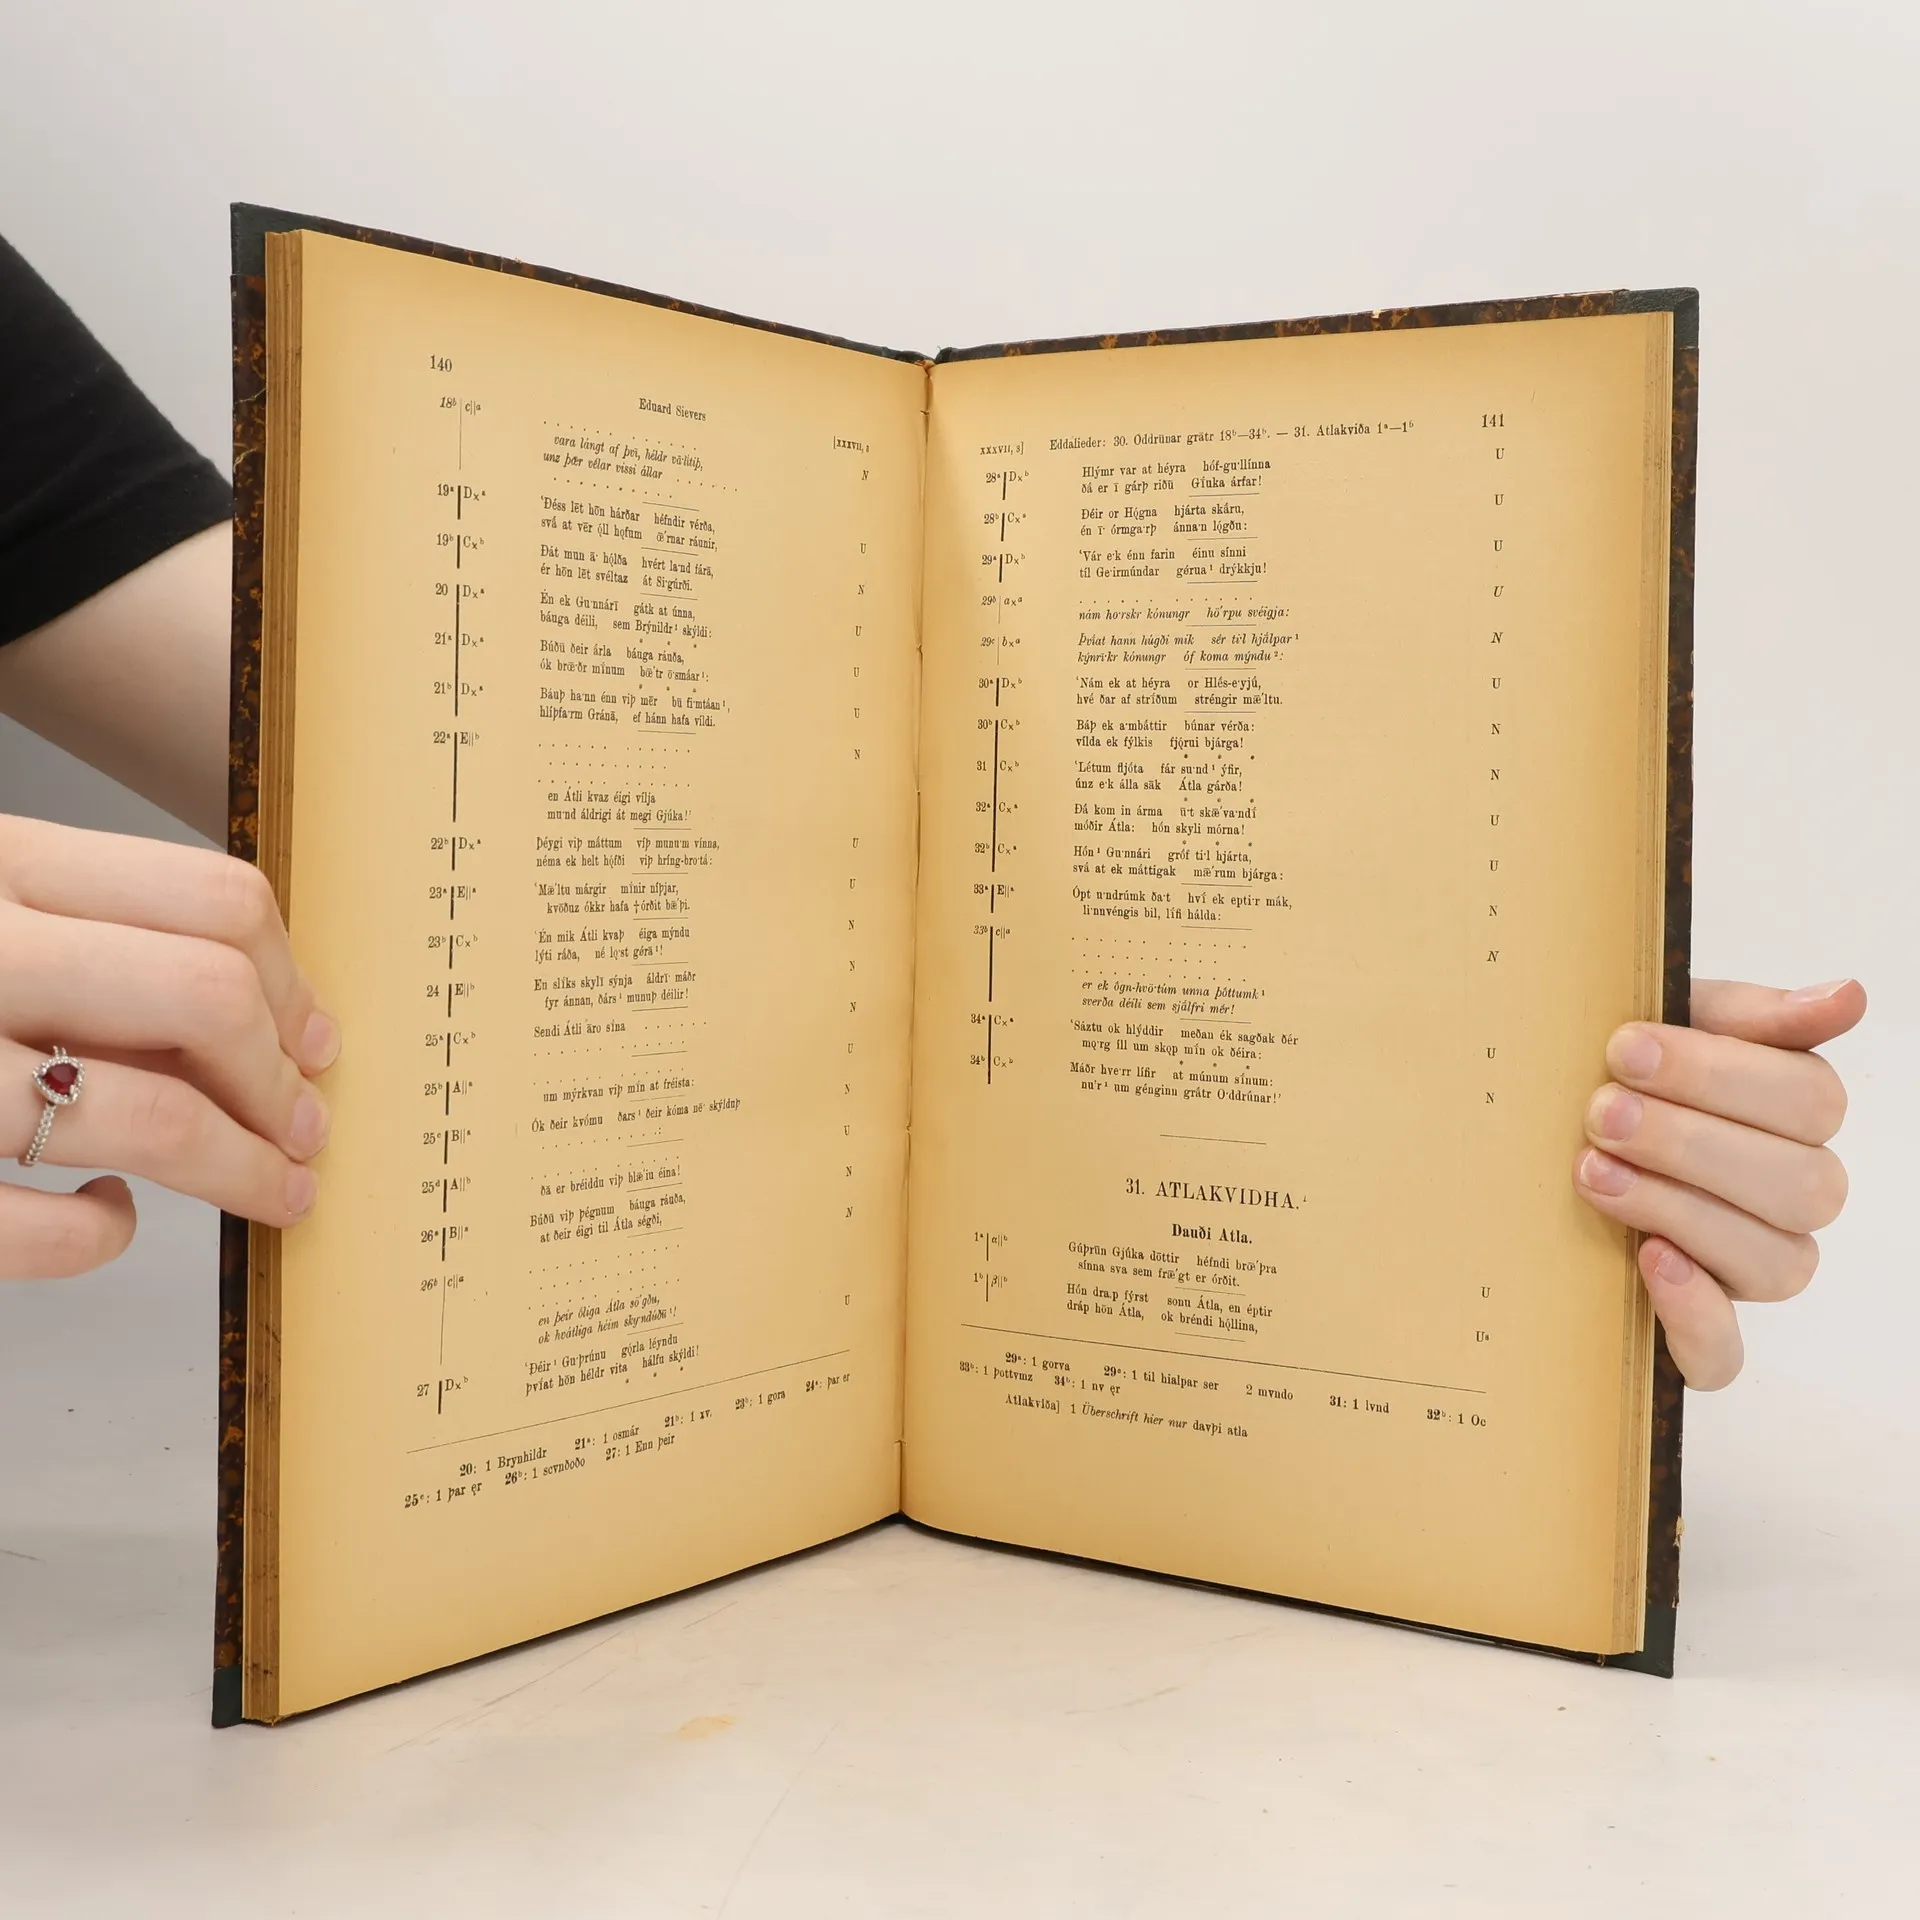 140
Eduard Sievers
[XXXVII, 3
18ᵇ c||a
. . . . . . . . . .
vara lángt af því, héldr vā·lítiþ, N
unz þǣr vélar vissi állar . . . . . .
. . . . . . . . . .
19ᵃ D×ᵃ ‘Ðéss lēt hōn hárðar héfndir vérða, U
svá at vēr ǫ́ll hǫfum œ̄´rnar ráunir,
19ᵇ C×ᵇ Ðát mun ā· hǫ́lða hvért la·nd fárā, N
ér hōn lēt svéltaz át Si·gúrði.
20 D×ᵃ Én ek Gu·nnárī gátk at únna, U
báuga déili, sem Brýnildr¹ skýldi:
21ᵃ D×ᵃ Búðū ðeir árla báuga ráuða, U
ók brœ̄·ðr mínum bœ̄´tr ō·smáar¹:
21ᵇ D×ᵃ Báuþ ha·nn énn viþ mēr bū fi·mtáan¹, U
hlíþfa·rm Gránā, ef hánn hafa víldi.
22ᵃ E||ᵇ . . . . . . . . . . N
. . . . . . . . .
. . . . . . . . . .
en Átli kvaz éigi vílja
mu·nd áldrigi át megi Gjúka!’
22ᵇ D×ᵃ Þéygi viþ máttum víþ munu·m vínna, U
néma ek helt hǫ́fði viþ hríng-bro·tá:
23ᵃ E||ᵃ ‘Mǣ´ltu márgir mínir níþjar, U
kvōðuz ókkr hafa †órðit bǣ´þi.
23ᵇ C×ᵇ ‘Én mik Átli kvaþ éiga mýndu N
lýti ráða, né lǫ·st gérā¹!
24 E||ᵇ En slíks skylī sýnja áldrī· máðr N
fyr ánnan, ðárs¹ munuþ déilir!
25ᵃ C×ᵇ Sendi Átli āro sína . . . . . . N
. . . . . . . . . . .
25ᵇ A||ᵃ . . . . . . . . . . U
um mýrkvan viþ mín at fréista:
25ᶜ B||ᵃ Ók ðeir kvómu ðars¹ ðeir kóma nē· skýlduþ N
. . . . . . . . . .:
25ᵈ A||ᵇ . . . . . . . . . . U
ðā er bréiddu viþ blǣ´iu éina!
26ᵃ B||ᵃ Búðū viþ þégnum báuga ráuða, N
at ðeir éigi til Átla ségði,
26ᵇ c||a . . . . . . . N
. . . . . . . . .
. . . . . . . . . .
en þeir óliga Átla sö´gðu,
ok hvátliga héim sky·ndúðū¹!
27 D×ᵇ ‘Ðéir¹ Gu·þrúnu gǫ́rla léyndu U
þvíat hōn héldr vita hálfu skýldi!
20: 1 Brynhildr 21ᵃ: 1 osmár 21ᵇ: 1 xv. 23ᵇ: 1 gora 24ᵃ: þar er
25ᶜ: 1 þar ęr 26ᵇ: 1 scvnðoðo 27: 1 Enn þeir
XXXVII, 3] Eddalieder: 30. Oddrūnar grātr 18ᵇ—34ᵇ. — 31. Atlakviða 1ᵃ—1ᵇ 141
28ᵃ D×ᵇ Hlýmr var at héyra hóf-gu·llínna U
ðá er ī gárþ riðū Gíuka árfar!
28ᵇ C×ᵃ Ðéir or Hǫ́gna hjárta skáru, U
én ī· órmga·rþ ánna·n lǫ́gðu:
29ᵃ D×ᵇ ‘Vár e·k énn farin éinu sínni U
til Ge·irmúndar gérua¹ drýkkju!
29ᵇ a×a . . . . . . . . . . . . U
nám ho·rskr kónungr hö´rpu svéigja:
29ᶜ b×a Þvíat hann húgði mik sér ti·l hjálpar¹ N
kýnrī·kr kónungr óf koma mýndu²:
30ᵃ D×ᵇ ‘Nám ek at héyra or Hlés-e·yjú, U
hvé ðar af stríðum stréngir mǣ´ltu.
30ᵇ C×ᵇ Báþ ek a·mbáttir búnar vérða: N
vílda ek fýlkis fjǫ́rui bjárga!
31 C×ᵇ ‘Létum fljóta fár su·nd¹ ýfir, N
únz e·k álla sāk Átla gárða!
32ᵃ C×ᵃ Ðá kom in árma ū·t skǣ´va·ndí U
móðir Átla: hón skyli mórna!
32ᵇ C×ᵃ Hón¹ Gu·nnári gróf ti·l hjárta, U
svá at ek máttigak mǣ´rum bjárga:
33ᵃ E||ᵃ Ópt u·ndrúmk ða·t hví ek epti·r mák, N
li·nnvéngis bil, lífi hálda:
33ᵇ c||a . . . . . . . . . . N
. . . . . . . . .
. . . . . . . . . .
er ek ógn-hvö·túm unna þóttumk¹
sverða déili sem sjálfri mér!
34ᵃ C×ᵃ ‘Sáztu ok hlýddir meðan ék sagðak ðér U
mǫ·rg íll um skǫp mín ok ðéira:
34ᵇ C×ᵇ Máðr hve·rr lífir at múnum sínum: N
nu´r¹ um génginn grátr O·ddrúnar!’
31. ATLAKVIDHA.¹
Dauði Atla.
1ᵃ α||ᵇ Gúþrūn Gjúka dōttir héfndi brœ̄´þra U
sínna sva sem frǣ´gt er órðit.
1ᵇ β||ᵇ Hón dra·p fýrst sonu Átla, en éptir Uˢ
dráp hōn Átla, ok bréndi hǫ́llina,
29ᵃ: 1 gorva 29ᶜ: 1 til hialpar ser 2 mvndo 31: 1 lvnd 32ᵇ: 1 Oc
33ᵇ: 1 þottvmz 34ᵇ: 1 nv ęr
Atlakviða] 1 Überschrift hier nur davþi atla